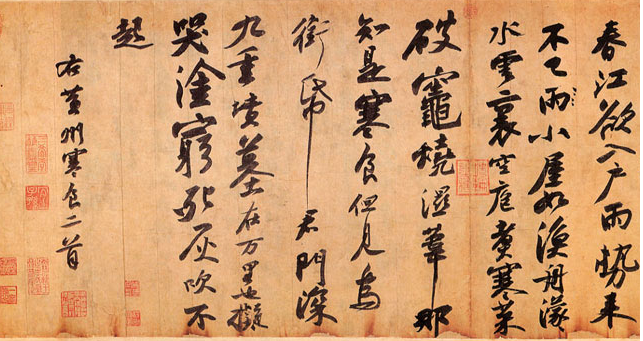 春江欲入戶雨勢來
不已雨小屋如漁舟濛々
水雲裏空庖煮寒菜
破竈燒濕葦那
知是寒食但見烏
銜帋君門深
九重墳墓在万里也擬
哭塗窮死灰吹不
起
右黄州寒食二首